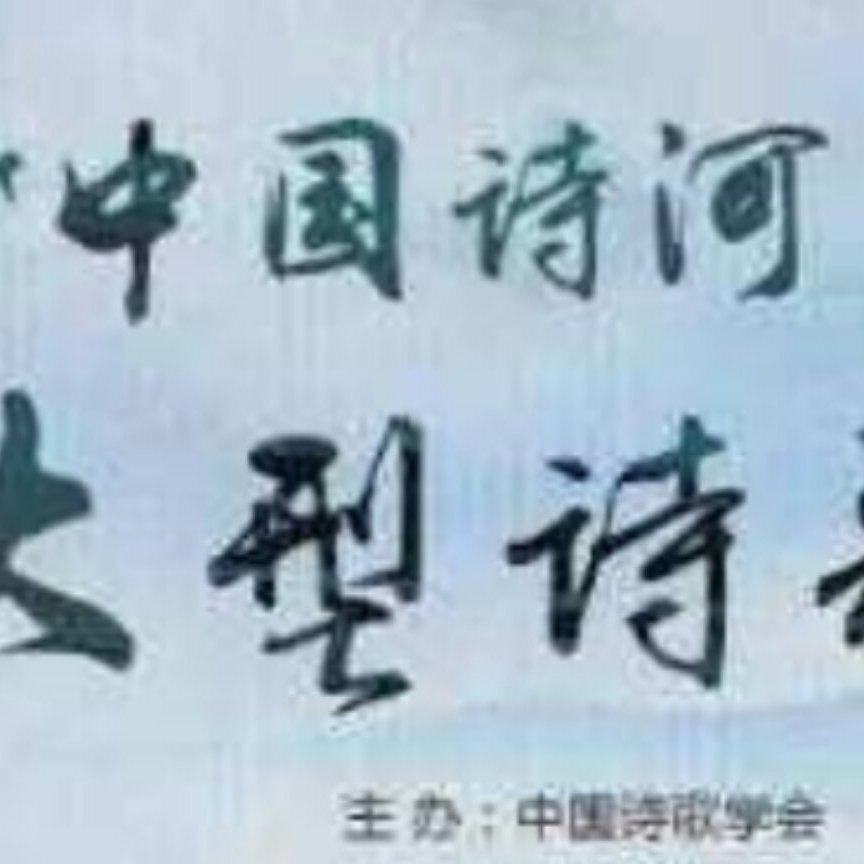 中国诗河
大型诗
主办：中国诗歌学会